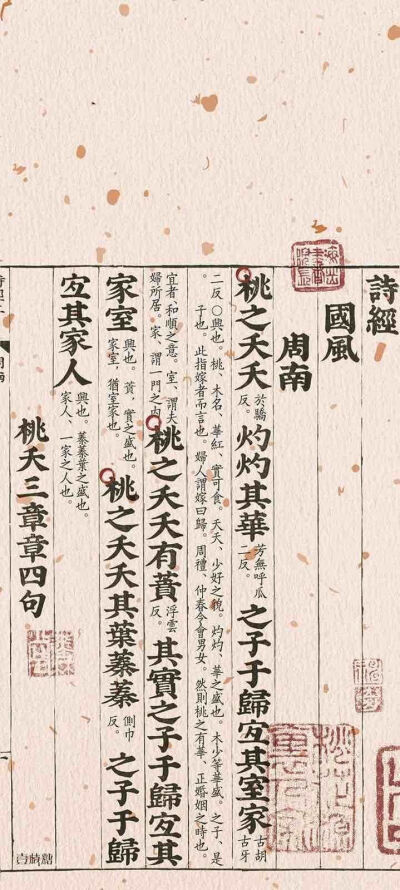 詩經
國風
周南
桃之夭夭於驕反。灼灼其華芳無呼瓜二反。之子于歸宜其室家古胡古牙
二反○興也。桃、木名、華紅、實可食。夭夭、少好之貌。灼灼、華之盛也。木少等華盛。之子、是
子也。此指嫁者而言也。婦人謂嫁曰歸。周禮、仲春令會男女。然則桃之有華、正婚姻之時也。
宜者、和順之意。室、謂夫
婦所居。家、謂一門之内
桃之夭夭有蕡浮雲反。其實之子于歸宜其
家室興也。蕡、實之盛也。家室、猶室家也。桃之夭夭其葉蓁蓁側巾反。之子于歸
宜其家人興也。蓁蓁葉之盛也。家人、一家之人也。
桃夭三章章四句